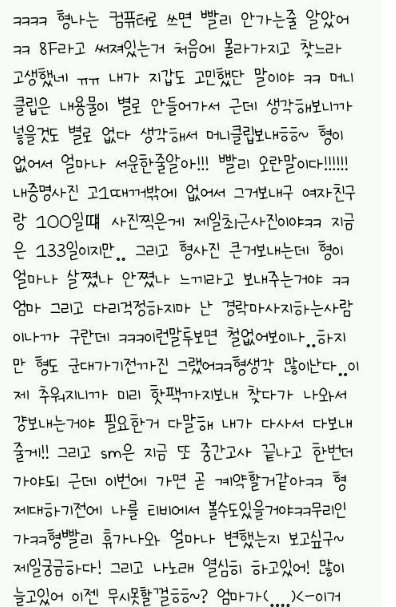 ㅋㅋㅋㅋ 형나는 컴퓨터로 쓰면 빨리 안가는줄 알았어
ㅋㅋ 8F라고 써져있는거 처음에 몰라가지고 찾느라
고생했네 ㅠㅠ 내가 지갑도 고민했단 말이야 ㅋㅋ 머니
클립은 내용물이 별로 안들어가서 근데 생각해보니까
넣을것도 별로 없다 생각해서 머니클립보내ㅎㅎ~ 형이
없어서 얼마나 서운한줄알아!!! 빨리 오란말이다!!!!!!
내증명사진 고1때꺼밖에 없어서 그거보내구 여자친구
랑 100일때 사진찍은게 제일최근사진이야ㅋㅋ 지금
은 133일이지만.. 그리고 형사진 큰거보내는데 형이
얼마나 살쪘나 안쪘나 느끼라고 보내주는거야 ㅋㅋ
엄마 그리고 다리걱정하지마 난 경락마사지하는사람
이나까 구란데 ㅋㅋㅋ이런말투보면 철없어보이나..하지
만 형도 군대가기전까진 그랬어ㅋㅋ형생각 많이난다..이
제 추워지니까 미리 핫팩까지보내 찾다가 나와서
걍보내는거야 필요한거 다말해 내가 다사서 다보내
줄게!! 그리고 sm은 지금 또 중간고사 끝나고 한번더
가야되 근데 이번에 가면 곧 계약할거같아ㅋㅋ 형
제대하기전에 나를 티비에서 볼수도있을거야ㅋㅋ무리인
가ㅋㅋ형빨리 휴가나와 얼마나 변했는지 보고싶구~
제일궁금하다! 그리고 나노래 열심히 하고있어! 많이
늘고있어 이젠 무시못할껄ㅎㅎ~? 엄마가(....)<-이거